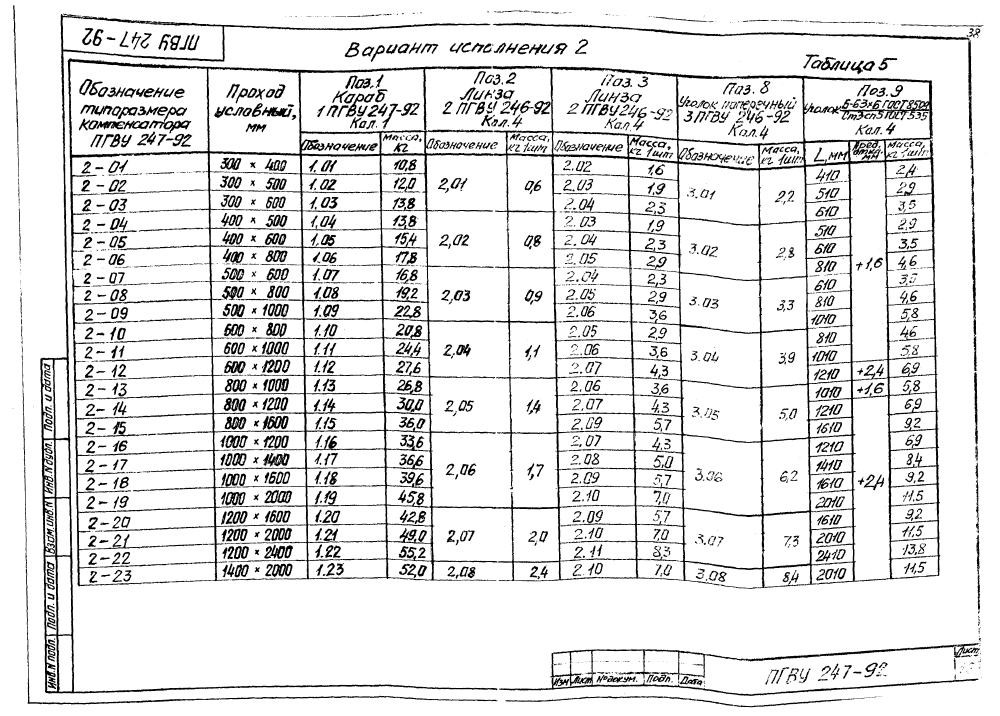 38
ПГВУ 247-92
Вариант исполнения 2
Таблица 5
Обозначение типоразмера компенсатора ПГВУ 247-92 | Проход условный, мм | Поз.1 Короб 1 ПГВУ 247-92 Кол. 1 | Поз.2 Линза 2 ПГВУ 246-92 Кол. 4 | Поз. 3 Линза 2 ПГВУ 246-92 Кол. 4 | Поз. 8 Уголок поперечный 3 ПГВУ 246-92 Кол. 4 | Поз. 9 Уголок Б-63×6 ГОСТ 8509 Ст3сп5 ГОСТ 535 Кол. 4
Обозначение | Масса, кг | Обозначение | Масса, кг 1шт | Обозначение | Масса, кг 1шт | Обозначение | Масса, кг 1шт | L, мм | Пред. откл. мм | Масса, кг 1шт
2-01 | 300 × 400 | 1.01 | 10,8 | 2,01 | 0,6 | 2.02 | 1,6 | 3.01 | 2,2 | 410 | +1,6 | 2,4
2-02 | 300 × 500 | 1.02 | 12,0 | 2.03 | 1,9 | 510 | 2,9
2-03 | 300 × 600 | 1.03 | 13,8 | 2.04 | 2,3 | 610 | 3,5
2-04 | 400 × 500 | 1,04 | 13,8 | 2,02 | 0,8 | 2.03 | 1,9 | 3.02 | 2,8 | 510 | 2,9
2-05 | 400 × 600 | 1.05 | 15,4 | 2.04 | 2,3 | 610 | 3,5
2-06 | 400 × 800 | 1.06 | 17,8 | 2.05 | 2,9 | 810 | 4,6
2-07 | 500 × 600 | 1.07 | 16,8 | 2,03 | 0,9 | 2.04 | 2,3 | 3.03 | 3,3 | 610 | 3,5
2-08 | 500 × 800 | 1.08 | 19,2 | 2.05 | 2,9 | 810 | 4,6
2-09 | 500 × 1000 | 1.09 | 22,8 | 2.06 | 3,6 | 1010 | 5,8
2-10 | 600 × 800 | 1.10 | 20,8 | 2,04 | 1,1 | 2.05 | 2,9 | 3.04 | 3,9 | 810 | 4,6
2-11 | 600 × 1000 | 1.11 | 24,4 | 2.06 | 3,6 | 1010 | 5,8
2-12 | 600 × 1200 | 1.12 | 27,6 | 2.07 | 4,3 | 1210 | +2,4 | 6,9
2-13 | 800 × 1000 | 1.13 | 26,8 | 2,05 | 1,4 | 2.06 | 3,6 | 3.05 | 5,0 | 1010 | +1,6 | 5,8
2-14 | 800 × 1200 | 1.14 | 30,0 | 2.07 | 4,3 | 1210 | +2,4 | 6,9
2-15 | 800 × 1600 | 1.15 | 36,0 | 2.09 | 5,7 | 1610 | 9,2
2-16 | 1000 × 1200 | 1.16 | 33,6 | 2,06 | 1,7 | 2.07 | 4,3 | 3.06 | 6,2 | 1210 | 6,9
2-17 | 1000 × 1400 | 1.17 | 36,6 | 2.08 | 5,0 | 1410 | 8,4
2-18 | 1000 × 1600 | 1.18 | 39,6 | 2.09 | 5,7 | 1610 | 9,2
2-19 | 1000 × 2000 | 1.19 | 45,8 | 2.10 | 7,0 | 2010 | 11,5
2-20 | 1200 × 1600 | 1.20 | 42,8 | 2,07 | 2,0 | 2.09 | 5,7 | 3.07 | 7,3 | 1610 | 9,2
2-21 | 1200 × 2000 | 1.21 | 49,0 | 2.10 | 7,0 | 2010 | 11,5
2-22 | 1200 × 2400 | 1.22 | 55,2 | 2.11 | 8,3 | 2410 | 13,8
2-23 | 1400 × 2000 | 1.23 | 52,0 | 2,08 | 2,4 | 2.10 | 7,0 | 3.08 | 8,4 | 2010 | 11,5
Инв.N подл. | Подп. и дата | Взам.инв.N | Инв.N дубл. | Подп. и дата
Изм | Лист | № докум. | Подп. | Дата
ПГВУ 247-92
Лист